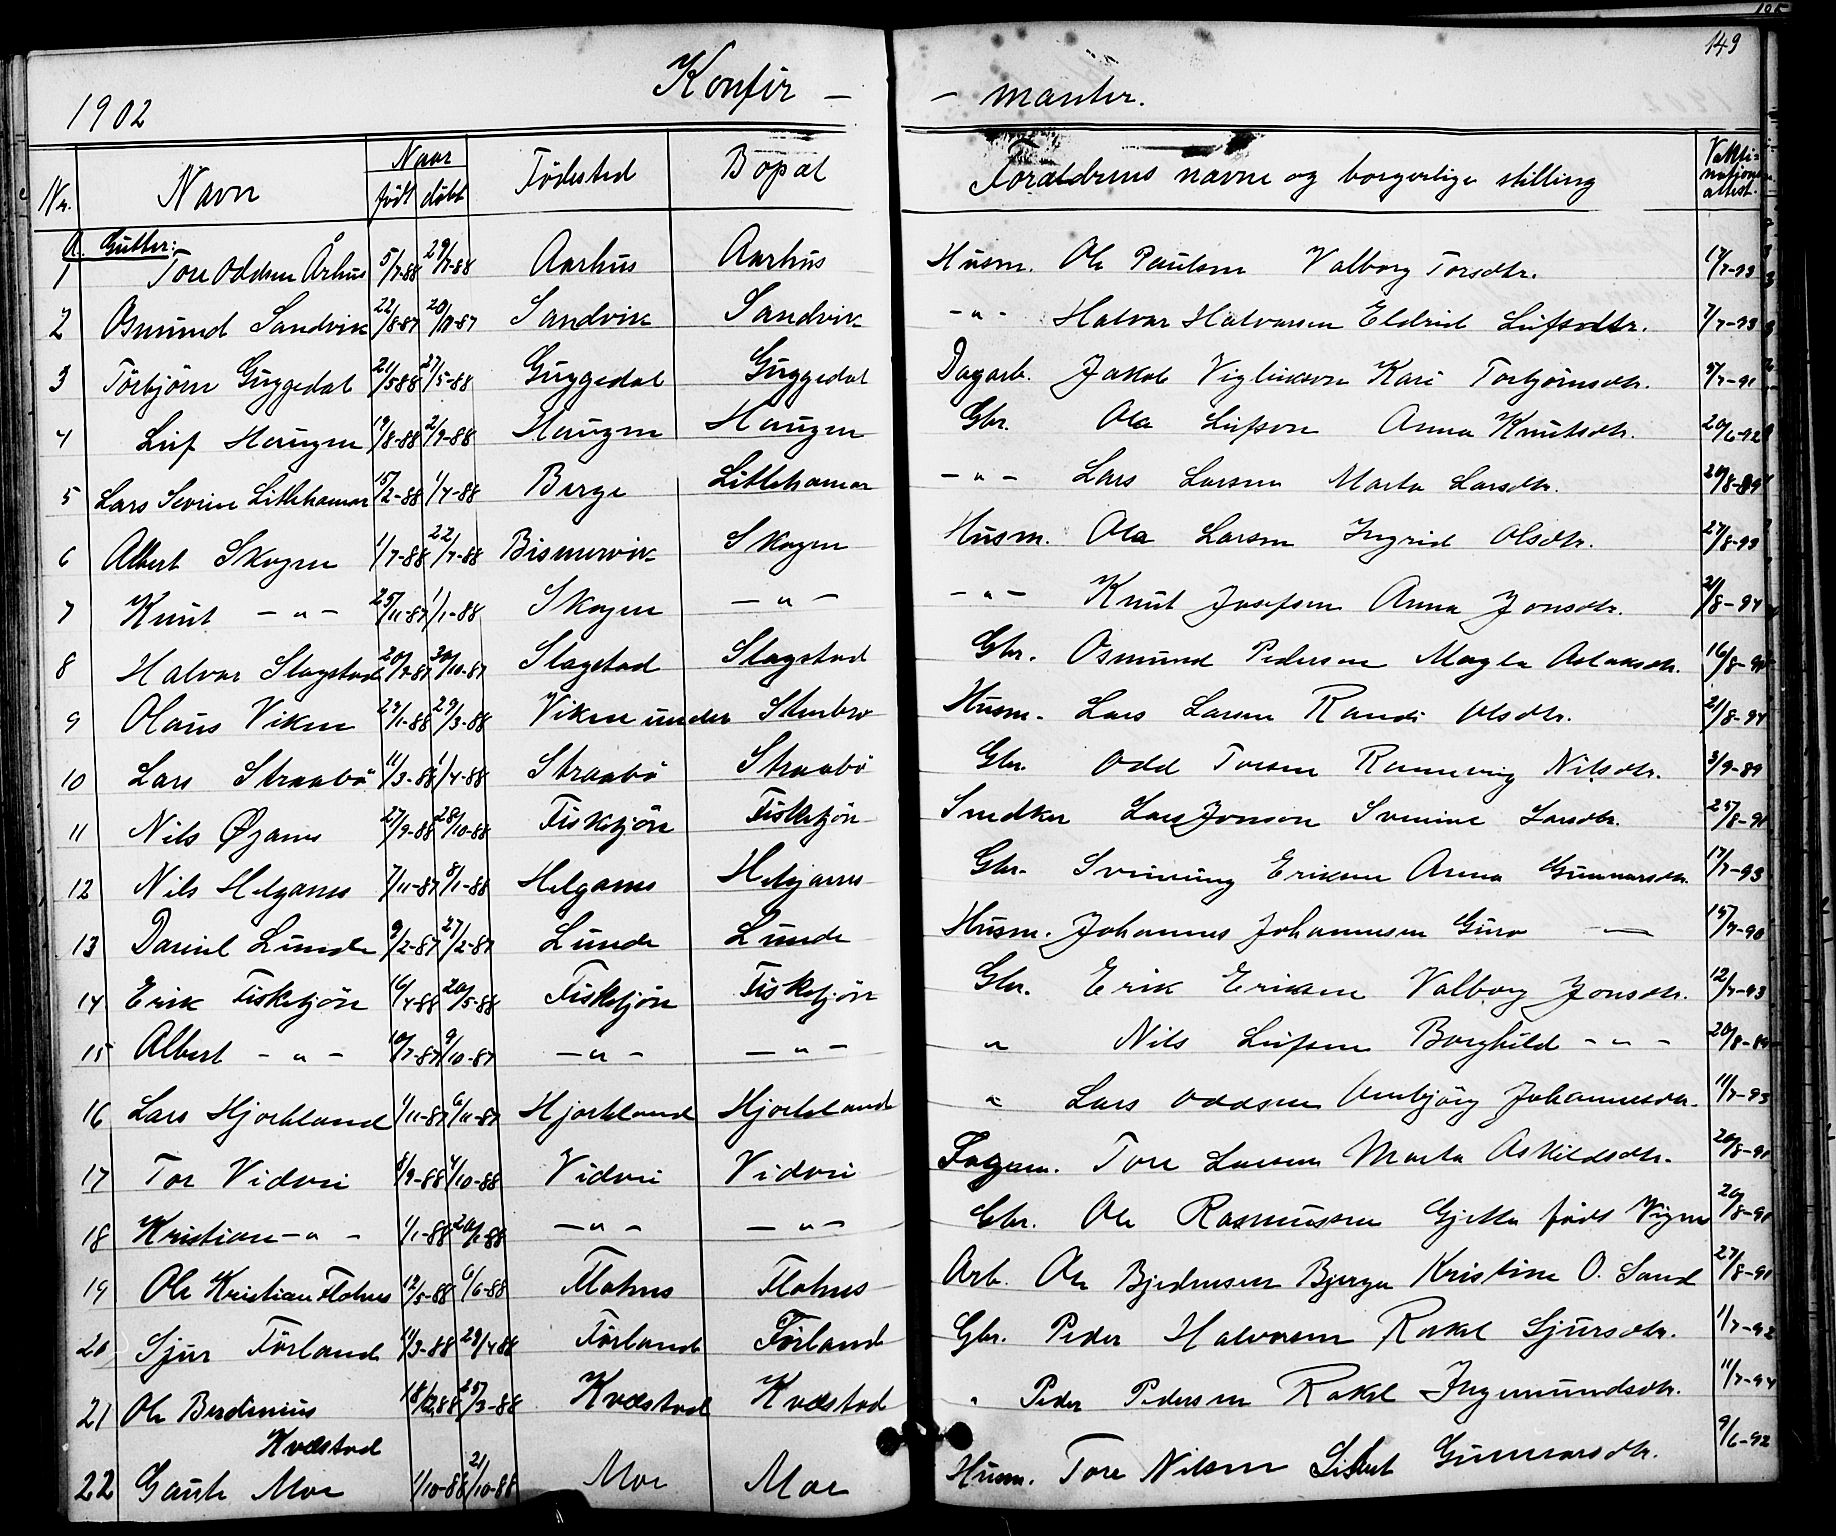 149
1902 Konfir - - manter.
Nr. Navn Naar født døbt Fødested Bopæl Forældrenes navne og borgerlige stilling Vakcinationsattest.
A. Gutter:
1 Tore Oddsen Århus 5/7-88 29/7-88 Aarhus Aarhus Husm. Ole Paulsen Valborg Torsdtr. 17/7-93
2 Osmund Sandvik 22/8-87 Sandvik Sandvik -"- Halvor Halvorsen Eldrid Leifsdtr. 7/7-93
3 Torbjörn Guggedal 21/5 88 27/5-88 Guggedal Guggedal Dagarb. Jakob Vigleikson Kari Torbjörnsdtr. 5/7-91
4 Leif Haugen 19/8-88 2/9-88 Haugen Haugen Gbr. Ola Leifson Anna Knutsdtr. 20/6-92
5 Lars Severin Litlehamar 15/2-88 1/4-88 Berge Litlehamar -"- Lars Larsen Marta Larsdtr. 20/8-89
6 Albert Skogen 1/7-88 22/7-88 Bismervik Skogen Husm. Ola Larsen Ingrid Olsdtr. 27/8-93
7 Knut -"- 25/11-87 1/1-88 Skogen -"- -"- Knut Josefsen Anna Jonsdtr. 21/8-94
8 Halvor Slagstad 20/9-87 30/10-87 Slagstad Slagstad Gbr. Osmund Pedersen Magla Aslaksdtr. 16/8-90
9 Olaus Viken 29/1-88 29/3-88 Viken under Stenbro Husm. Lars Larsen Randi Olsdtr. 21/8-94
10 Lars Straabö 11/3-88 1/4-88 Straabö Straabö Gbr. Odd Torsen Rannveig Nilsdtr. 3/9-89
11 Nils Øganes 27/9-88 28/10-88 Fisketjön Fisketjön Snedker Lars Jonson Severine Larsdtr. 25/8-91
12 Nils Helganes 7/11-87 8/1-88 Helganes Helganes Gbr. Sveinung Eriksen Anna Gunnarsdtr. 17/7-93
13 Daniel Lunde 9/2-87 27/2-87 Lunde Lunde Husm. Johannes Johannesen Guro — 15/7-90
14 Erik Fisketjön 16/4-88 20/5-88 Fisketjön Fisketjön Gbr. Erik Eriksen Valborg Jonsdtr. 12/7-93
15 Albert -"- 10/7-87 9/10-87 -"- -"- " Nils Leifsen Borghild -"- 20/8-89
16 Lars Hjorteland 1/11-87 6/11-87 Hjorteland Hjorteland " Lars Oddsen Anbjörg Johannesdtr. 11/7-93
17 Tor Vidvei 8/9-88 4/10-88 Vidvei Vidvei Tore Larsen Marta Askildsdtr. 20/8-91
18 Kristian -"- 1/1-88 -"- -"- Gbr. Ole Rasmussen Gjetta født Vignes 20/8-91
19 Ole Kristian Flatnes 12/5-88 6/6-88 Flatnes Flatnes Arb. Ole Bjedensen Bjerga Kristine O. Sand 27/8-91
20 Sjur Förland 11/3-88 29/4 88 Förland Förland Gbr. Peder Halvorsen Rakel Sjursdtr. 11/7-92
21 Ole Berdinius Kvæstad 18/2 88 25/3-88 Kvæstad Kvæstad " Peder Pedersen Rakel Ingemundsdtr. 11/7-94
22 Gaute Moe 1/10-88 21/10-88 Moe Moe Husm. Tore Nilsen Sibet Gunnarsdtr. 9/6-92